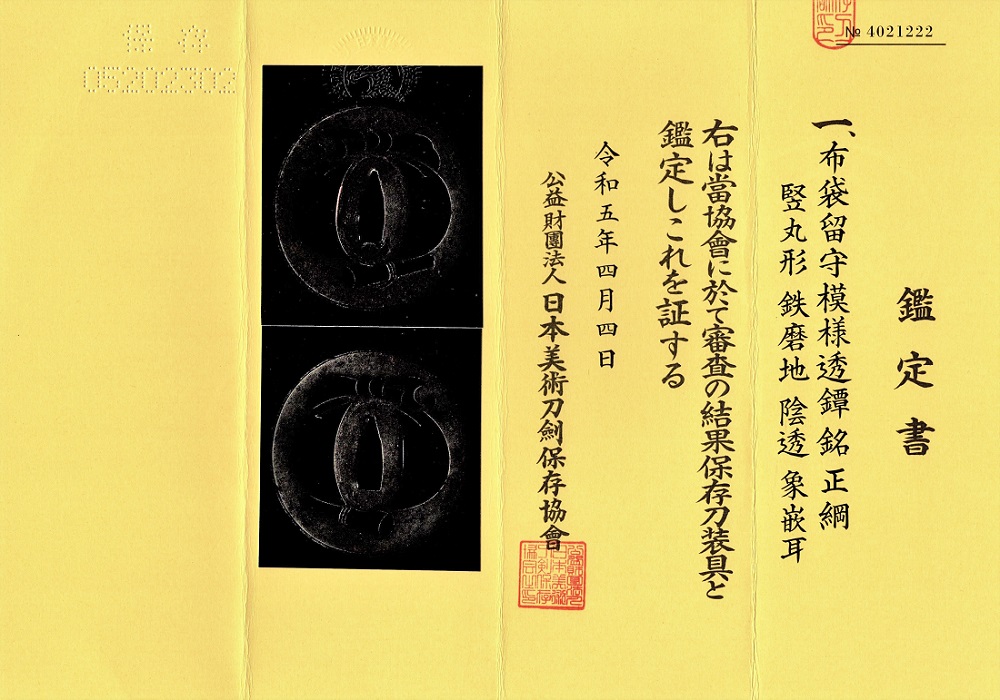 № 4021222
鑑定書
一、布袋留守模様透鐔 銘 正綱
竪丸形 鉄磨地 陰透 象嵌耳
右は當協會に於て審査の結果保存刀装具と
鑑定しこれを証する
令和五年四月四日
公益財團法人 日本美術刀劍保存協會
保存
05202302